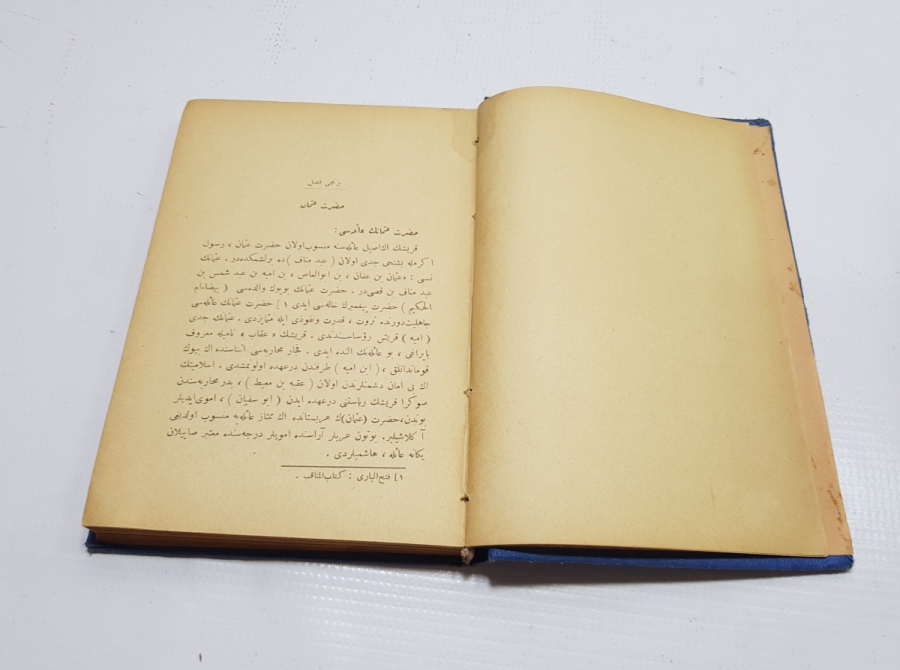 برنجی فصل
حضرت عثمان
حضرت عثمانك عائله‌سی:
قریشك اك اصیل عائله‌سنه منسوب اولان حضرت عثمان ، رسول
اكرمله بشنجی جدی اولان ( عبد مناف ) ده برلشمكده‌در . عثمانك
نسبی : «عثمان بن عفان ، بن ابوالعاص ، بن امیه بن عبد شمس بن
عبد مناف بن قصی‌در . حضرت عثمانك بویوك والده‌سی ( بیضاءام
الحكیم ) حضرت پیغمبرك خاله‌سی ایدی ١ ] حضرت عثمانك عائله‌سی
جاهلیت‌دورنده ثروت ، قدرت ونفوذی ایله متمایزدی . عثمانك جدی
( امیه ) قریش رؤساسندندی . قریشك « عقاب » نامیله معروف
بایراغی ، بو عائله‌نك النده ایدی . فجار محاربه‌سی اثناسنده اك بیوك
قوماندانلق ، ( ابن امیه ) طرفندن درعهده اولونمشدی . اسلامیتك
اك بی امان دشمنلرندن اولان ( عقبه بن معیط ) ، بدر محاربه‌سندن
صوكرا قریشك ریاستنی درعهده ایدن ( ابو سفیان ) ، اموی‌ایدیلر
بوندن،حضرت (عثمان)ك عربستانده اك ممتاز عائله‌یه منسوب اولدیغی
آ كلاشیلیر. بوتون عربلر آراسنده امویلر درجه‌سنده معتبر صاییلان
یكانه عائله ، هاشمیلردی .
١] فتح‌الباری : كتاب‌المناقب .